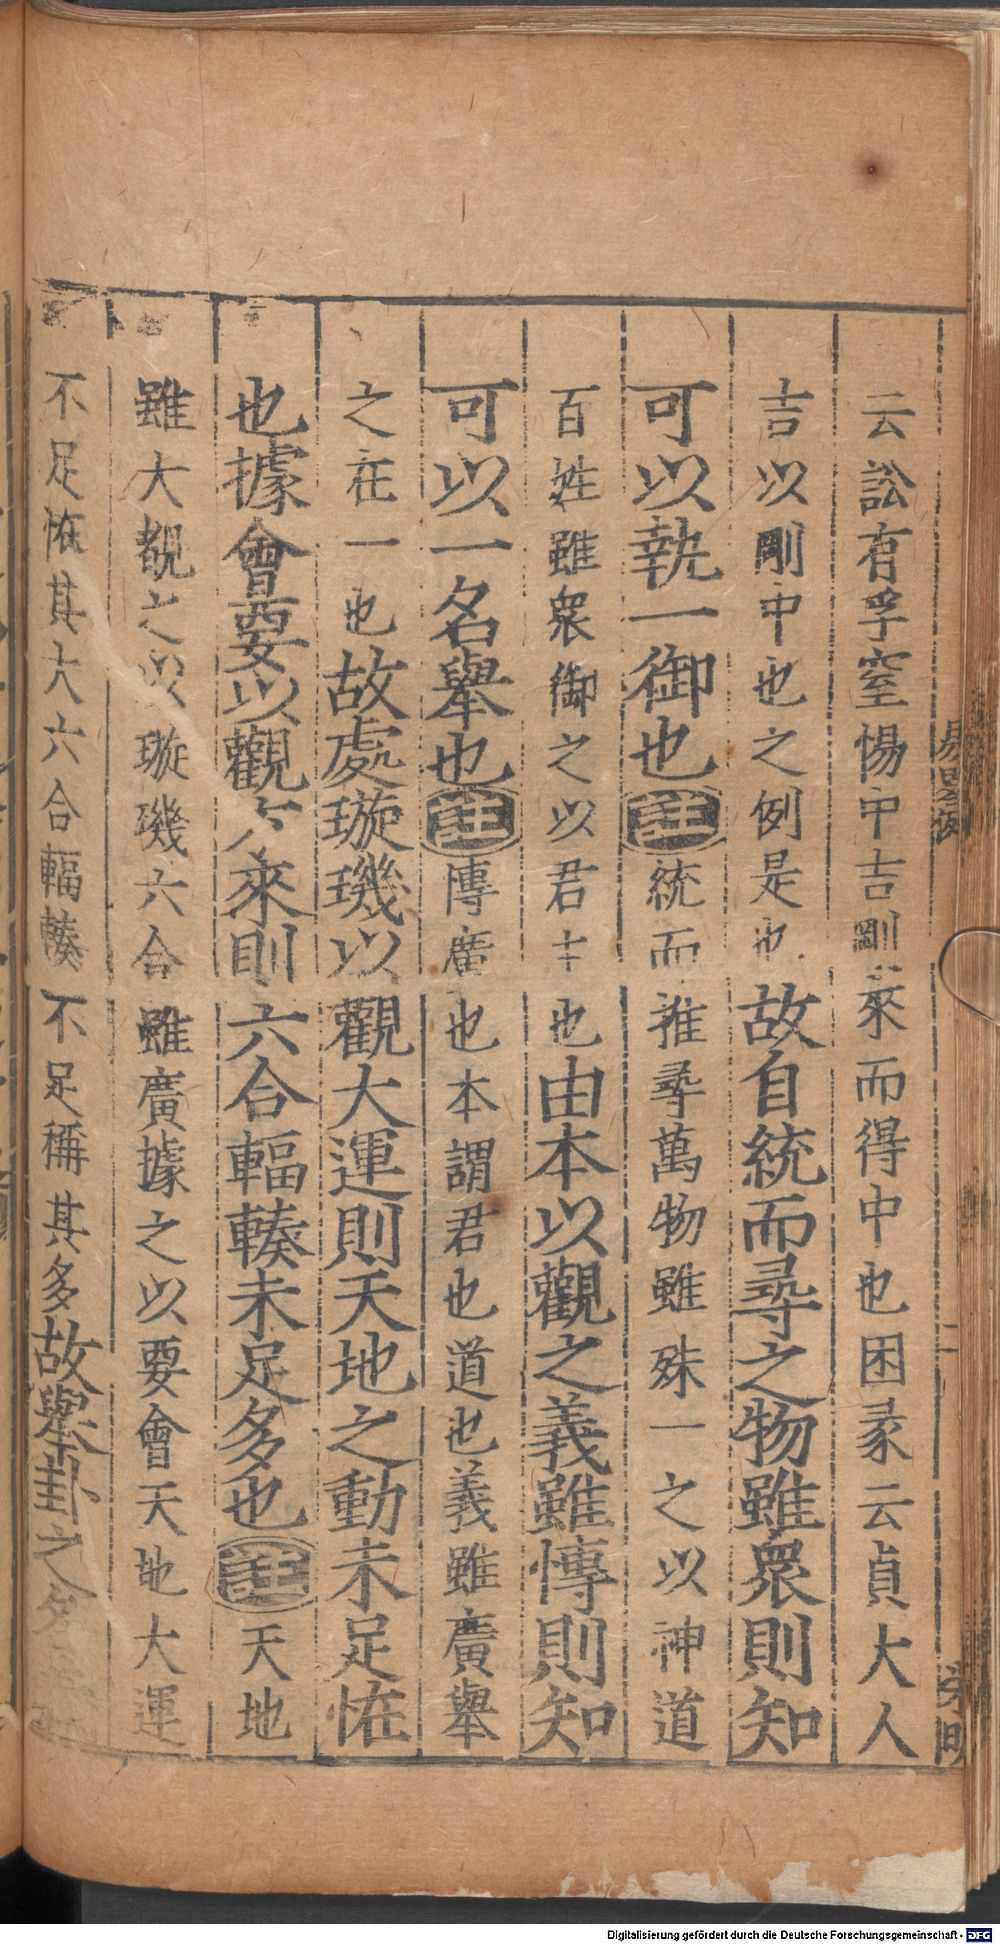 云訟有孚窒惕中吉剛來而得中也困彖云貞大人
吉以剛中也之例是也故自統而尋之物雖衆則知
可以執一御也註統而推尋萬物雖殊一之以神道
百姓雖衆御之以君主也由本以觀之義雖愽則知
可以一名舉也註愽廣也本謂君也道也義雖廣舉
之在一也故處璇璣以觀大運則天地之動未足恠
也據會要以觀方來則六合輻輳未足多也註天地
雖大覩之以璇璣六合雖廣據之以要會天地大運
不足恠其大六合輻輳不足稱其多故舉卦之名
易畧例
二
Digitalisierung gefördert durch die Deutsche Forschungsgemeinschaft - DFG